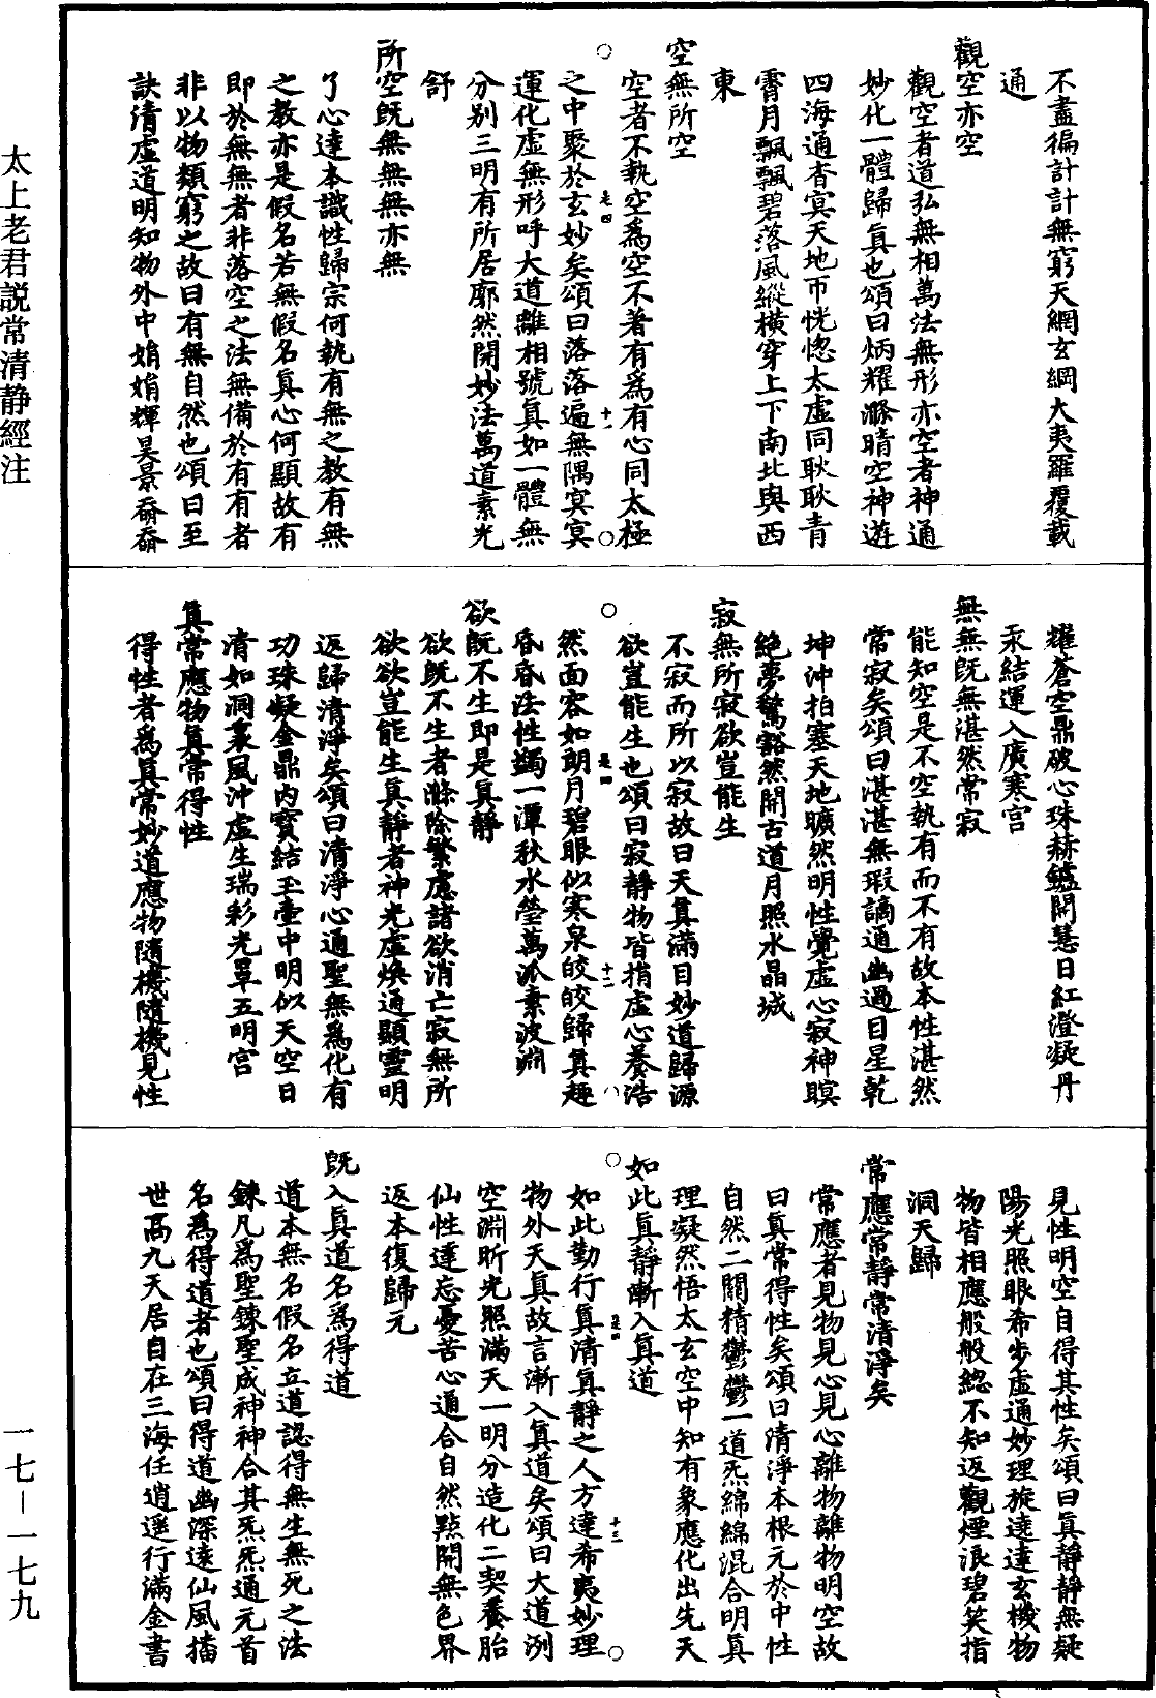 不盡徧計計無窮天網玄綱大夷羅覆載
通
觀空亦空
觀空者道弘無相萬法無形亦空者神通
妙化一體歸真也頌曰炳耀滌晴空神遊
四海通杳冥天地帀恍惚太虛同耿耿青
霄月飄飄碧落風縱橫穿上下南北與西
東
空無所空
空者不執空為空不著有為有心同太極
之中聚於玄妙矣頌曰落落遍無隅冥冥
運化虛無形呼大道離相號真如一體無
分別三明有所居廓然開妙法萬道素光
舒
所空既無無無亦無
了心達本識性歸宗何執有無之教有無
之教亦是假名若無假名真心何顯故有
即於無無者非落空之法無備於有有者
非以物類窮之故曰有無自然也頌曰至
訣清虛道明知物外中娟娟輝昊景奣奣
耀蒼空鼎破心珠赫鑪開慧日紅澄凝丹
汞結運入廣寒宮
無無既無湛然常寂
能知空是不空執有而不有故本性湛然
常寂矣頌曰湛湛無瑕謫通幽過目星乾
坤沖拍塞天地曠然明性覺虛心寂神瞑
絕夢驚豁然開古道月照水晶城
寂無所寂欲豈能生
不寂而所以寂故曰天真滿目妙道歸源
欲豈能生也頌曰寂靜物皆捐虛心養浩
然面容如朗月碧眼似寒泉皎皎歸真趣
昏昏法性蠲一潭秋水瑩萬派素波淵
欲既不生即是真靜
欲既不生者滌除繁慮諸欲消亡寂無所
欲欲豈能生真靜者神光虛煥通顯靈明
返歸清淨矣頌曰清淨心通聖無為化有
功珠凝金鼎內寶結玉壺中明似天空日
清如洞裏風沖虛生瑞彩光罩五明宮
真常應物真常得性
得性者為真常妙道應物隨機隨機見性
見性明空自得其性矣頌曰真靜靜無疑
陽光照眼希步虛通妙理旋遶達玄機物
物皆相應般般總不知返觀煙浪碧笑指
洞天歸
常應常靜常清淨矣
常應者見物見心見心離物離物明空故
曰真常得性矣頌曰清淨本根元於中性
自然二關精鬱鬱一道炁綿綿混合明真
理凝然悟太玄空中知有象應化出先天
如此真靜漸入真道
如此勤行真清真靜之人方達希夷妙理
物外天真故言漸入真道矣頌曰大道洌
空淵昕光照滿天一明分造化二契養胎
仙性達忘憂苦心通合自然點開無色界
返本復歸元
既入真道名為得道
道本無名假名立道認得無生無死之法
鍊凡為聖鍊聖成神神合其炁炁通元首
名為得道者也頌曰得道幽深遠仙風播
世高九天居自在三海任逍遥行滿金書
太上老君説常清静經注
一七—一七九